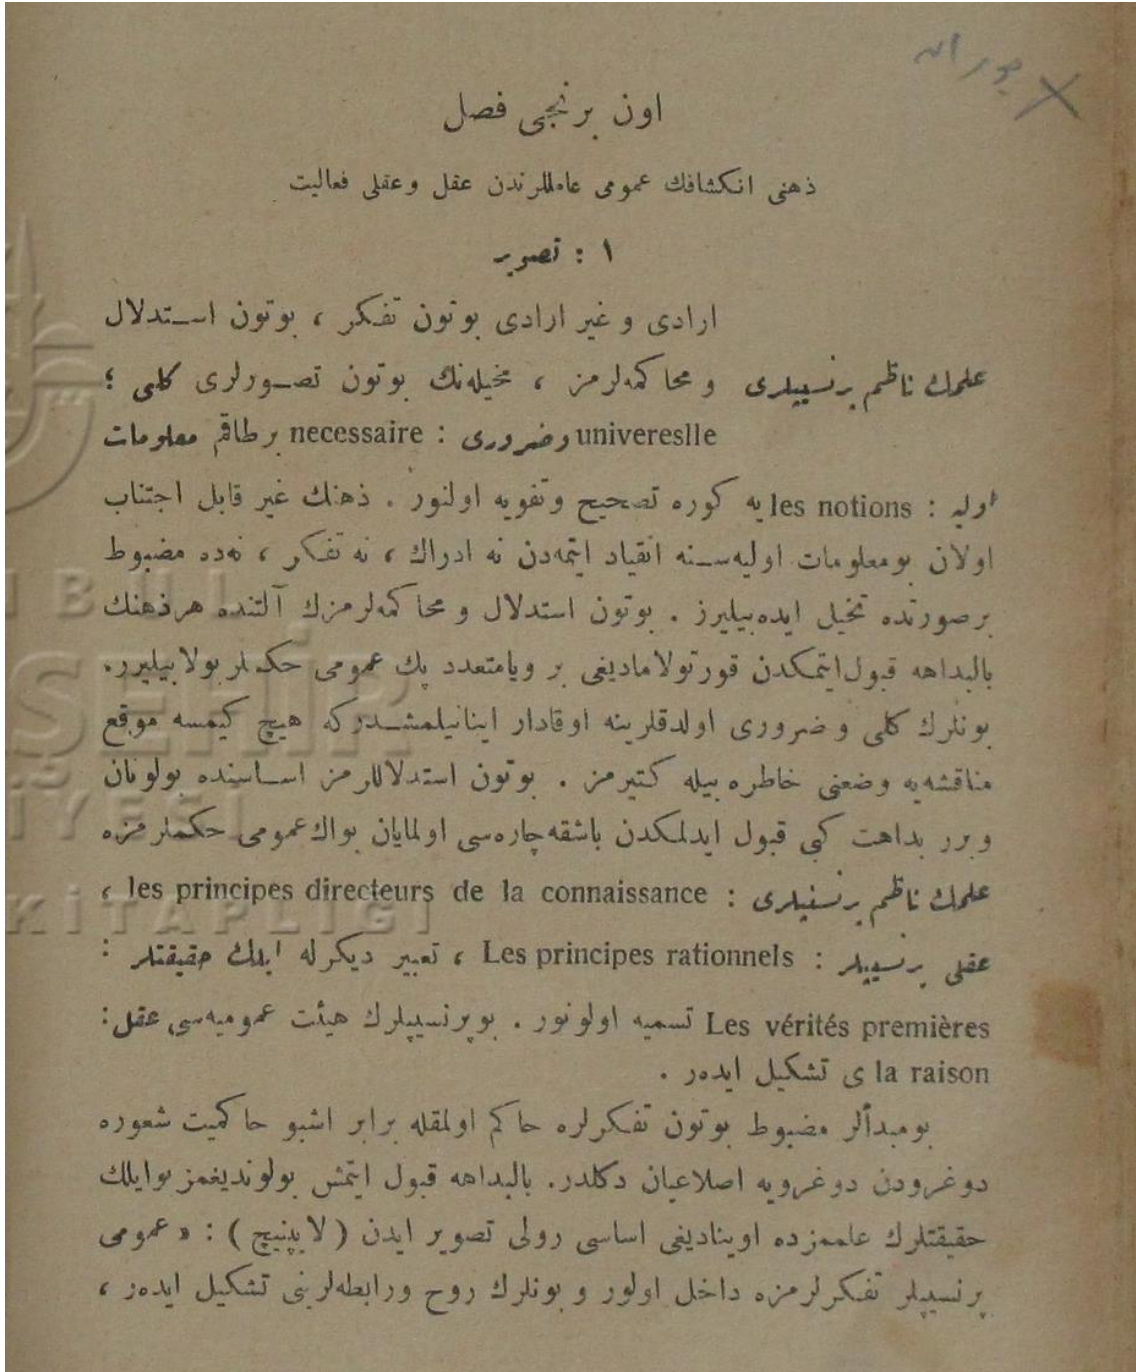 اون برنجی فصل
ذهنی انکشافك عمومی عامللرندن عقل وعقلی فعالیت
۱ : تصویر
ارادی و غیر ارادی بوتون تفکر ، بوتون استدلال
علمك ناظم پرنسیپلری و محاکمه‌لرمز ، مخیله‌نك بوتون تصورلری كلی ؛
univereslle وضروری : necessaire برطاقم معلومات
اولیه : les notions یه کوره تصحیح وتقویه اولنور . ذهنك غیر قابل اجتناب
اولان بومعلومات اولیه‌سنه انقیاد ایتمه‌دن نه ادراك ، نه تفکر ، نه‌ده مضبوط
برصورتده تخیل ایده‌بیلیرز . بوتون استدلال و محاکمه‌لرمزك آلتنده هرذهنك
بالبداهه قبول‌ایتمکدن قورتولامادیغی بر ویامتعدد پك عمومی حکملر بولابیلیرز.
بونلرك کلی و ضروری اولدقلرینه اوقادار اینانیلمشدرکه هیچ کیمسه موقع
مناقشه‌یه وضعنی خاطره بیله کتیرمز . بوتون استدلاللرمز اساسنده بولونان
وبرر بداهت کبی قبول ایدلمکدن باشقه چاره‌سی اولمایان بواك عمومی حکملرمزه
علمك ناظم پرنسیپلری : les principes directeurs de la connaissance ،
عقلی پرنسیپلر : Les principes rationnels ، تعبیر دیکرله ایلك حقیقتلر :
Les vérités premières تسمیه اولونور . بوپرنسیپلرك هیئت عمومیه‌سی عقل :
la raison ی تشکیل ایده‌ر .
بومبدألر مضبوط بوتون تفکرلره حاکم اولمقله برابر اشبو حاکمیت شعوره
دوغرودن دوغرویه اصلاعیان دکلدر. بالبداهه قبول ایتمش بولوندیغمز بوایلك
حقیقتلرك علممزده اوینادیغی اساسی رولی تصویر ایدن ( لایپنیچ ) : « عمومی
پرنسیپلر تفکرلرمزه داخل اولور و بونلرك روح ورابطه‌لرینی تشکیل ایده‌ر ،